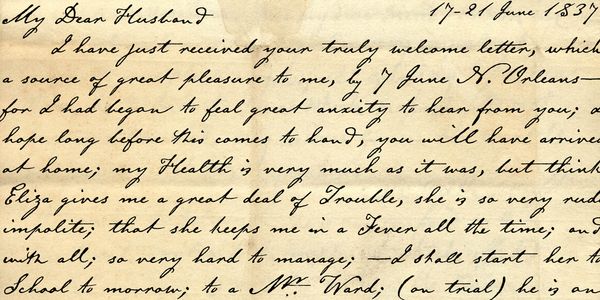 My Dear Husband 17-21 June 1837
I have just received your truly welcome letter, which
a source of great pleasure to me, by 7 June N. Orleans—
for I had began to feal great anxiety to hear from you; a
hope long before this comes to hand, you will have arrived
at home; my Health is very much as it was, but think
Eliza gives me a great deal of Trouble, she is so very rude
impolite; that she keeps me in a Fever all the time; and
with all; so very hard to manage; —I shall start her to
School to morrow; to a Mr. Ward; (on trial) he is an